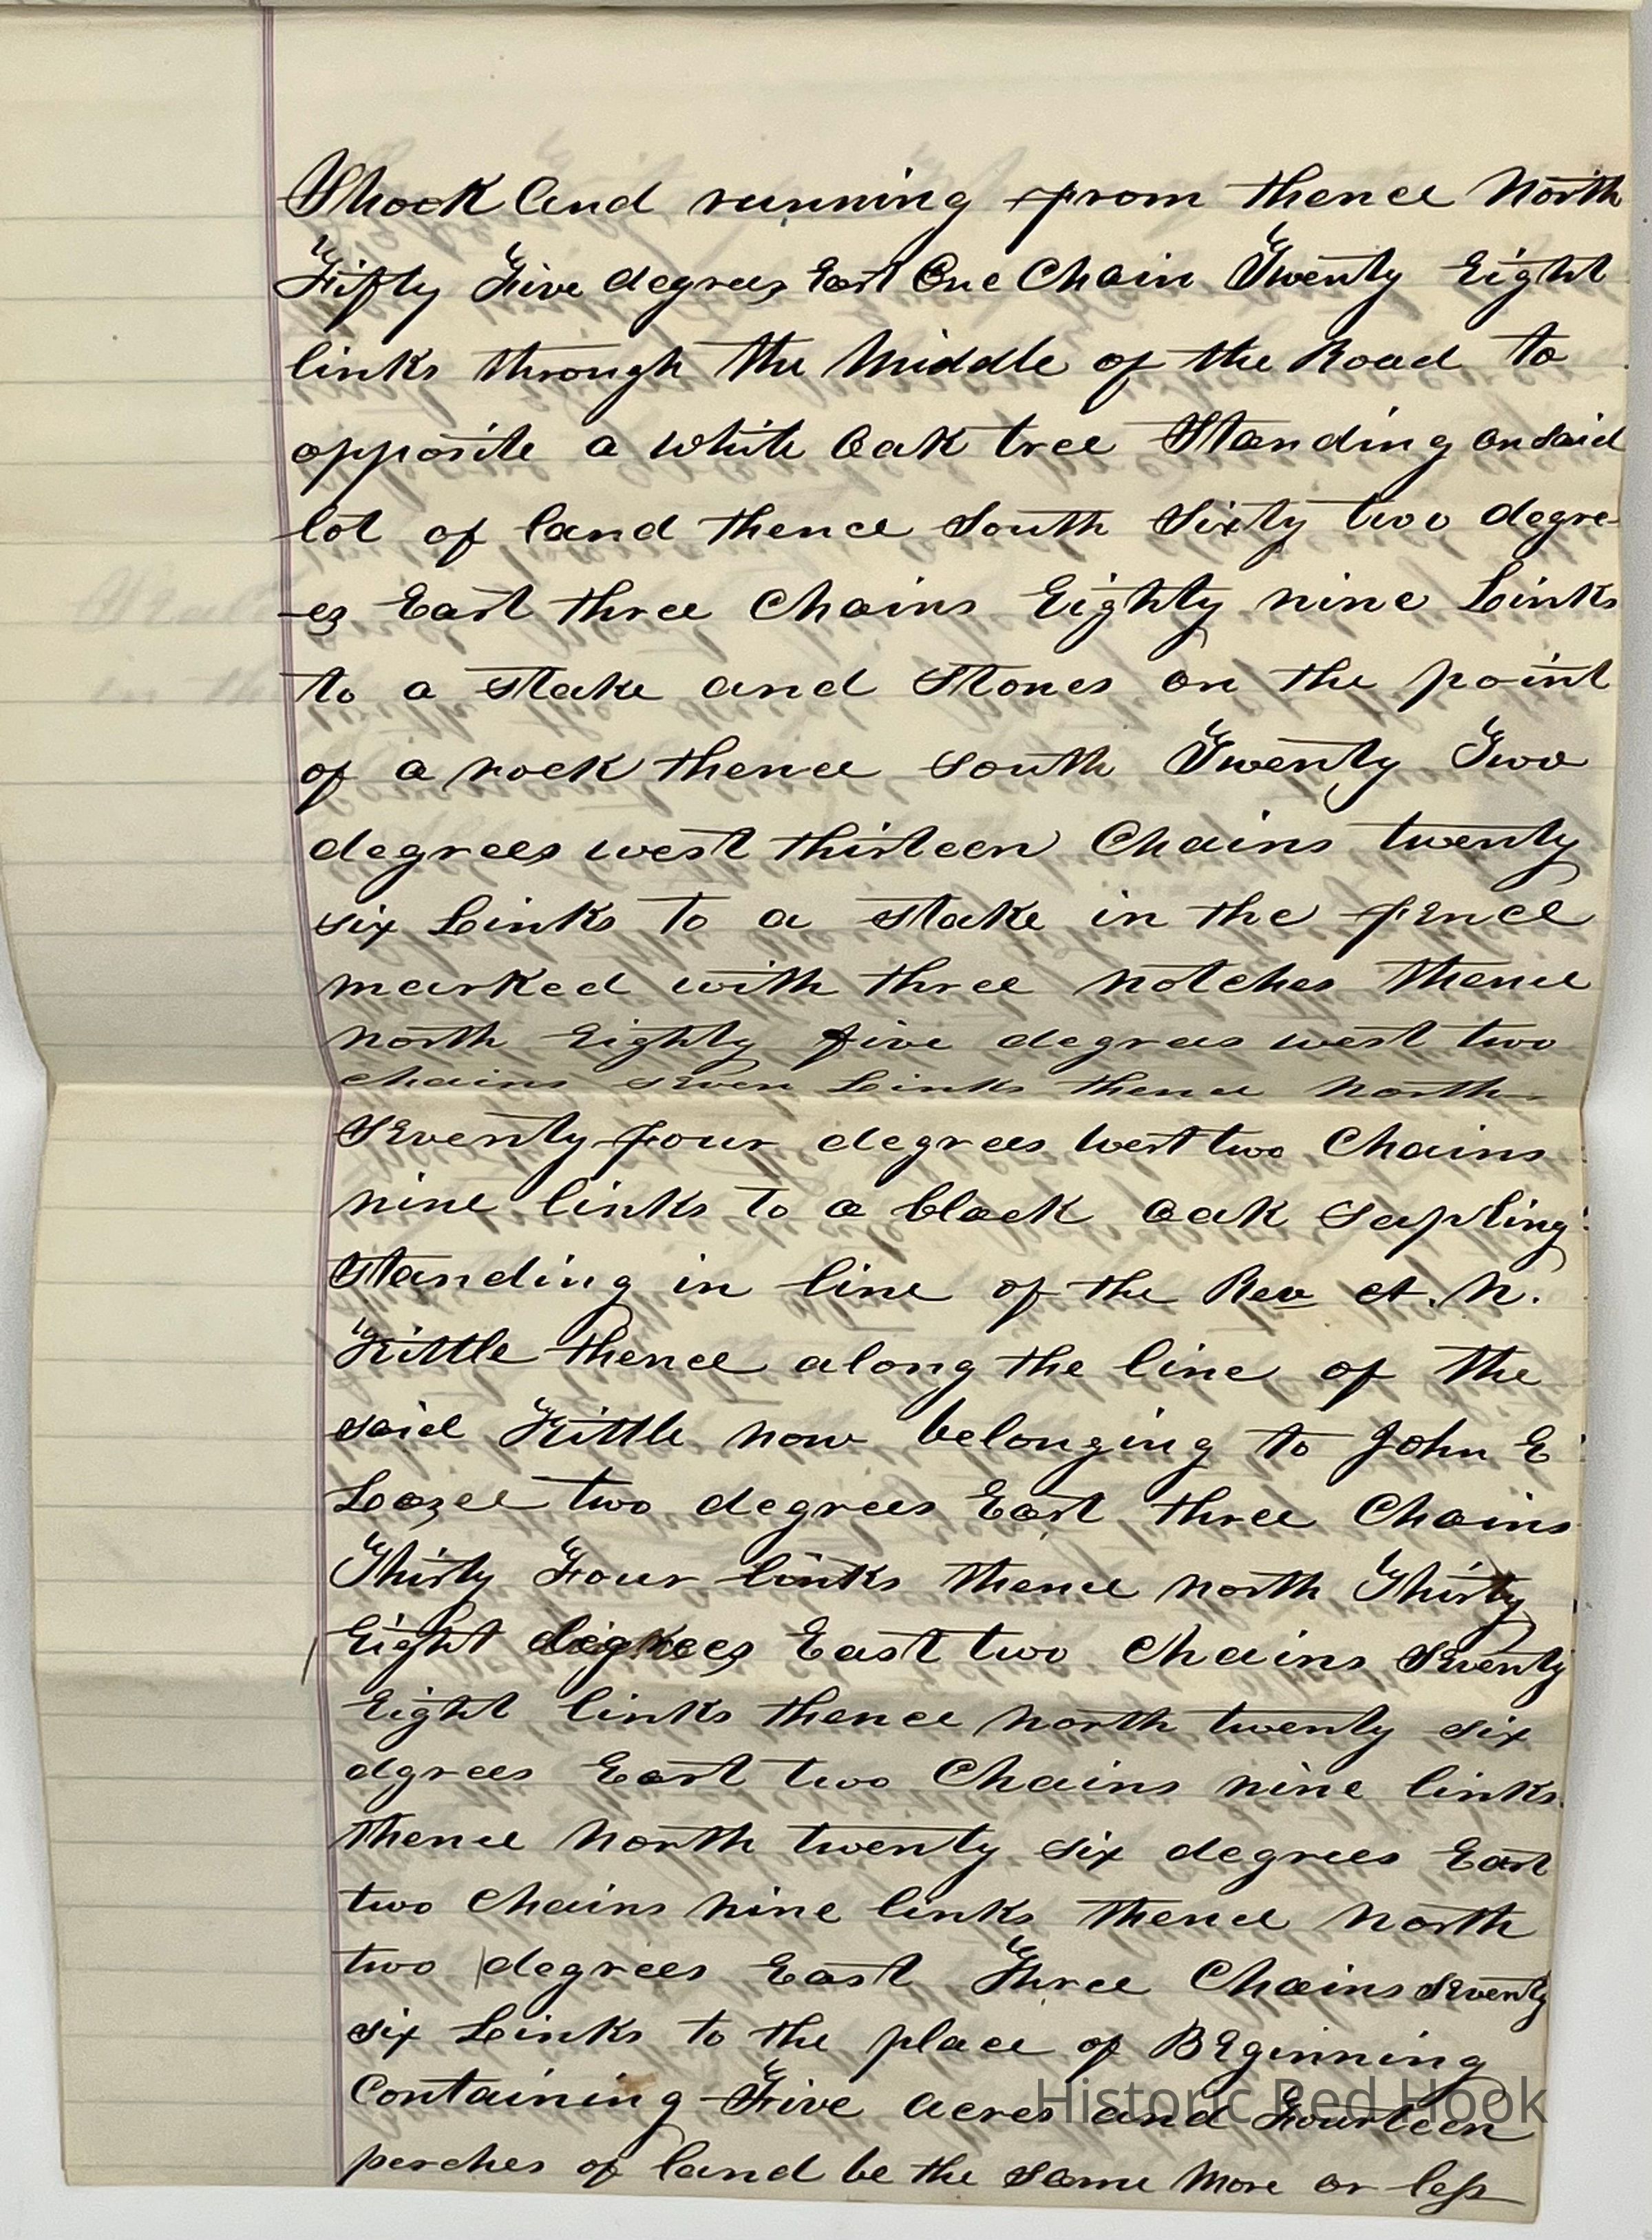 Shook and running from thence North
Fifty Five degrees East One Chain Twenty Eight
links through the Middle of the Road to
opposite a White Oak tree Standing on said
lot of land thence South Sixty two degre-
-es East three Chains Eighty nine Links
to a stake and Stones on the point
of a rock thence south Twenty Two
degrees west thirteen Chains twenty
six Links to a stake in the fence
marked with three notches thence
north Eighty five degrees west two
chains seven Links thence North
Seventy four degrees West two Chains
nine links to a black oak Sapling
Standing in line of the Rev A. N.
Kittle thence along the line of the
said Kittle now belonging to John E
Lozee two degrees East three Chains
Thirty Four links thence north Thirty
Eight degrees East two Chains Seventy
Eight links thence north twenty six
dgrees East two Chains nine links
thence North twenty six degrees East
two Chains nine links thence North
two degrees East Three Chains Seventy
six Links to the place of BEginning
Containing Five acres and Fourteen
perches of land be the same More or less
Historic Red Hook